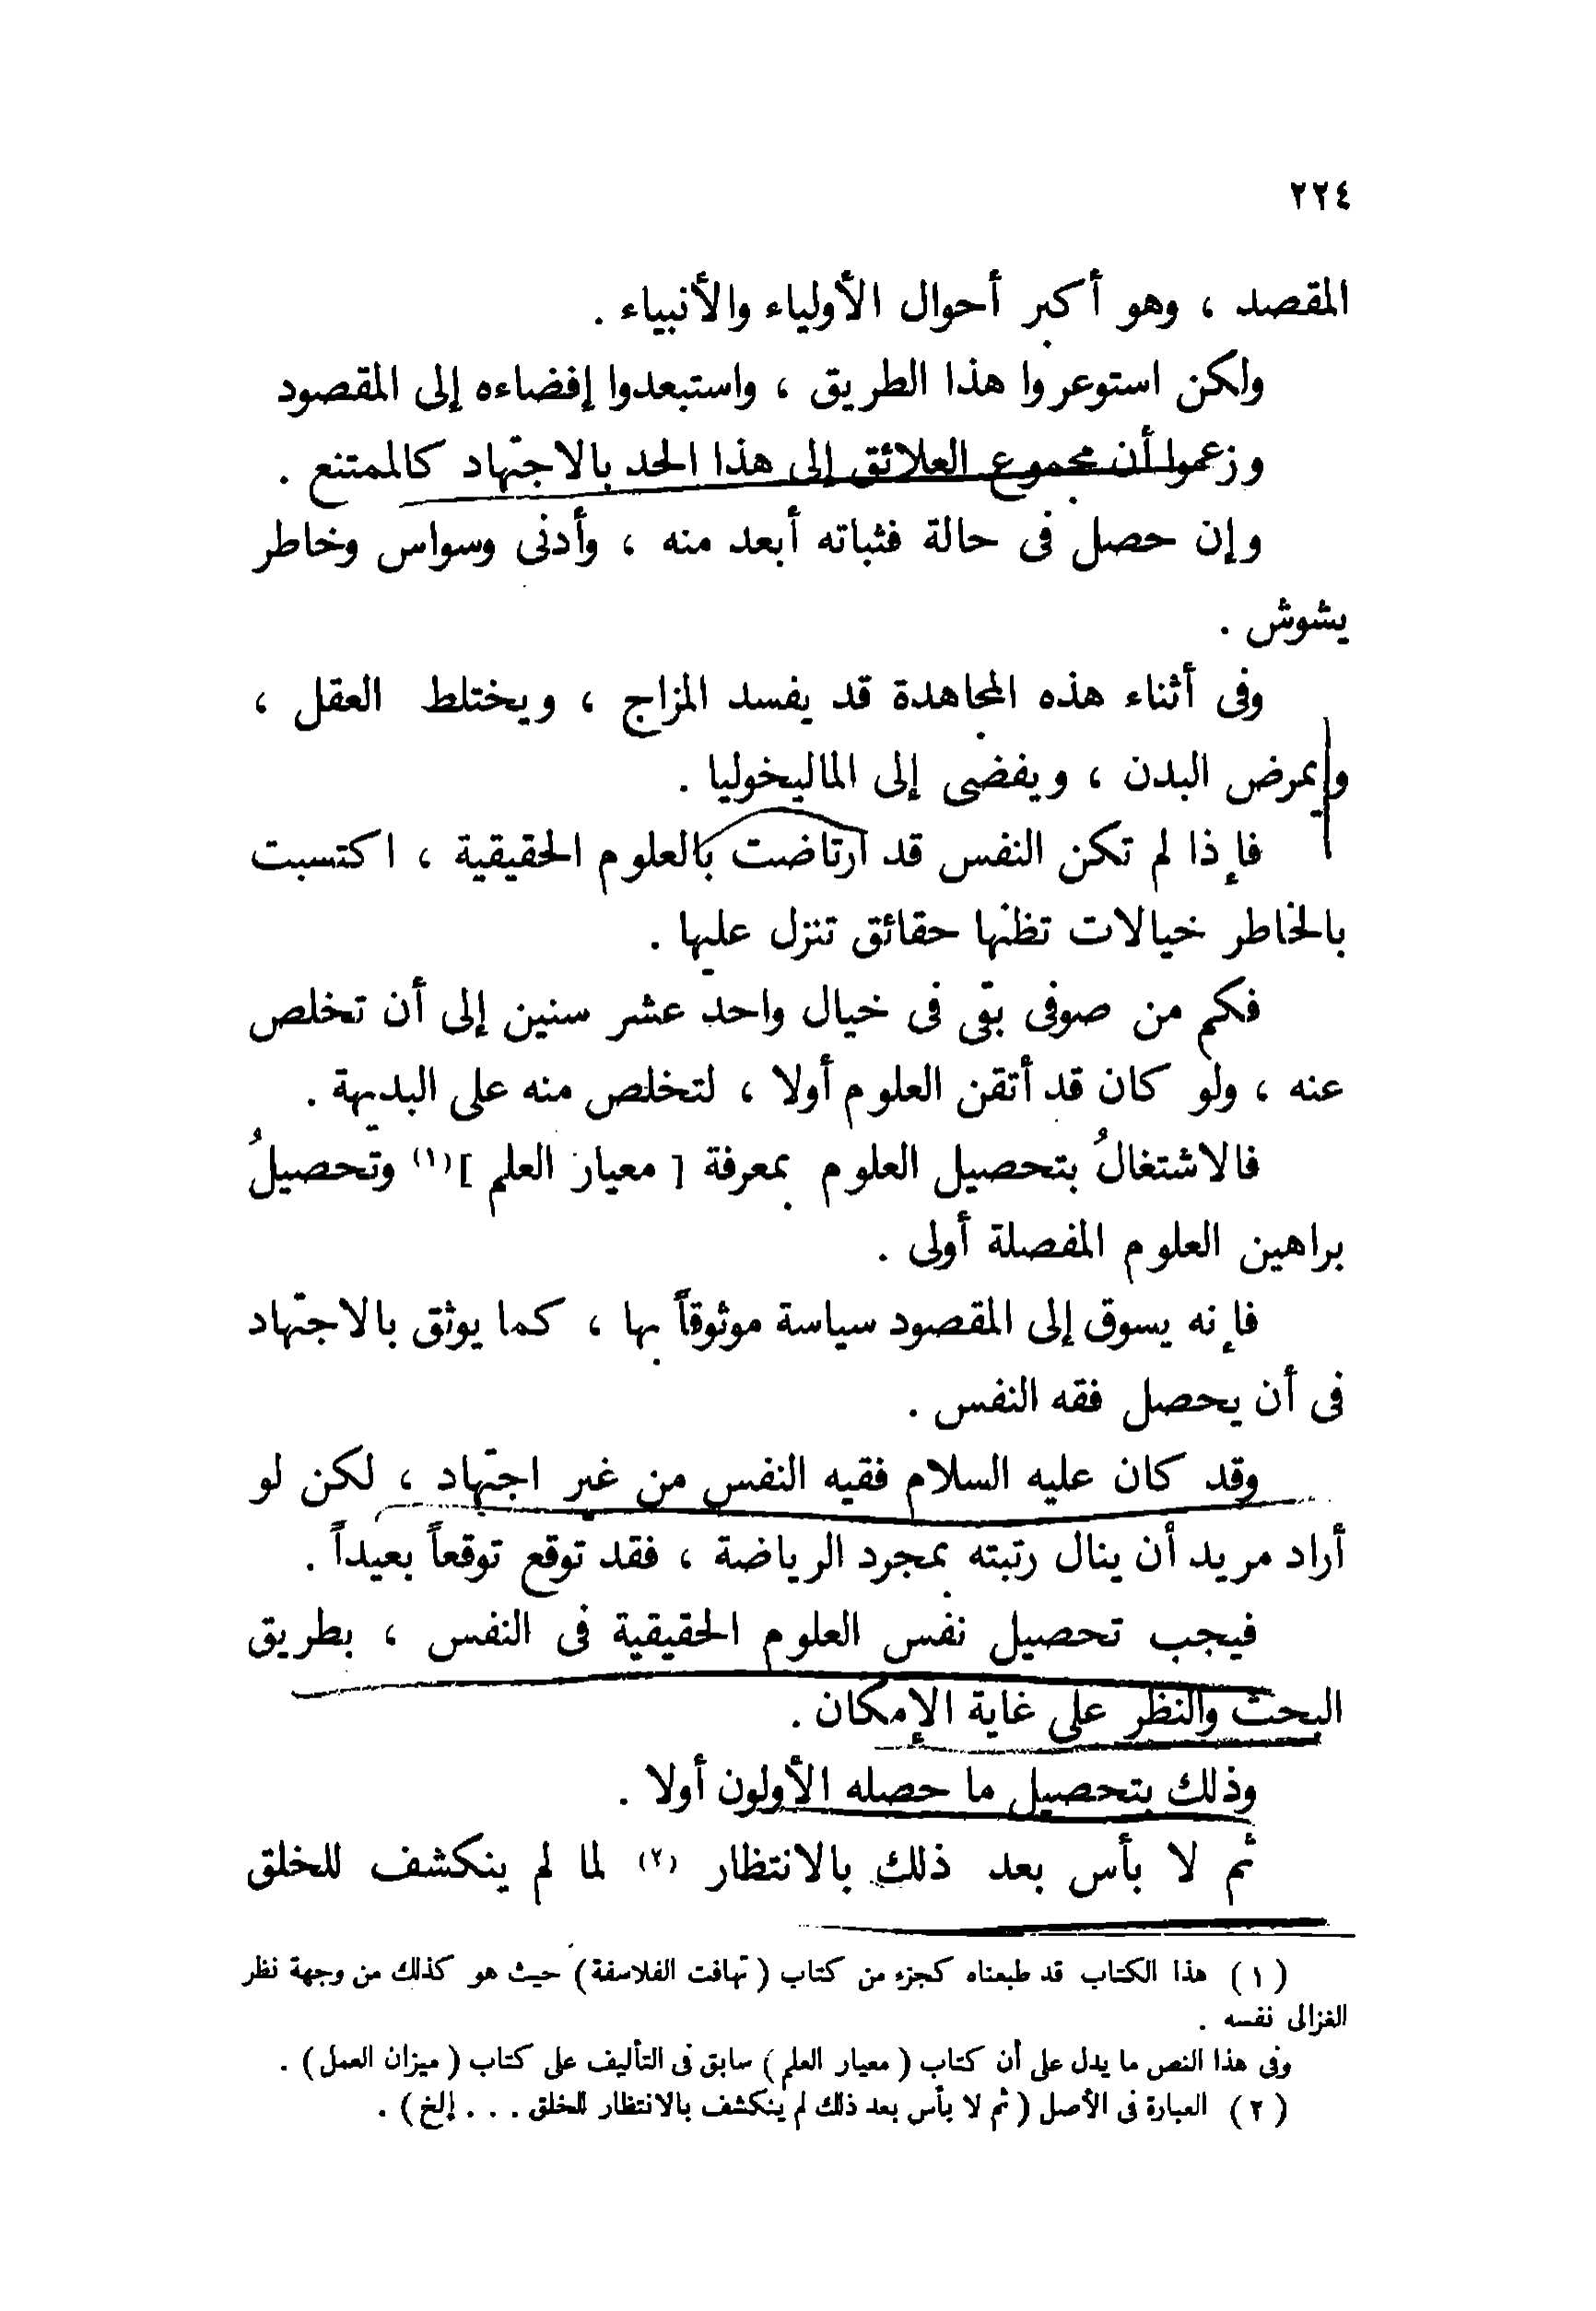 ٢٢٤
المقصد ، وهو أكبر أحوال الأولياء والأنبياء .
ولكن استوعروا هذا الطريق ، واستبعدوا إفضاءه إلى المقصود
وزعموا أن مجموع العلائق إلى هذا الحد بالاجتهاد كالممتنع .
وإن حصل فى حالة فثباته أبعد منه ، وأدنى وسواس وخاطر
يشوش .
وفى أثناء هذه المجاهدة قد يفسد المزاج ، ويختلط العقل ،
ويمرض البدن ، ويفضى إلى الماليخوليا .
فإذا لم تكن النفس قد ارتاضت بالعلوم الحقيقية ، اكتسبت
بالخاطر خيالات تظنها حقائق تنزل عليها .
فكم من صوفى بقى فى خيال واحد عشر سنين إلى أن تخلص
عنه ، ولو كان قد أتقن العلوم أولا ، لتخلص منه على البديهة .
فالاشتغالُ بتحصيل العلوم بمعرفة [ معيار العلم ](١) وتحصيلُ
براهين العلوم المفصلة أولى .
فإنه يسوق إلى المقصود سياسة موثوقاً بها ، كما يوثق بالاجتهاد
فى أن يحصل فقه النفس .
وقد كان عليه السلام فقيه النفس من غير اجتهاد ، لكن لو
أراد مريد أن ينال رتبته بمجرد الرياضة ، فقد توقع توقعاً بعيداً .
فيجب تحصيل نفس العلوم الحقيقية فى النفس ، بطريق
البحث والنظر على غاية الإمكان .
وذلك بتحصيل ما حصله الأولون أولا .
ثم لا بأس بعد ذلك بالانتظار (٢) لما لم ينكشف للخلق
( ١ ) هذا الكتاب قد طبعناه كجزء من كتاب ( تهافت الفلاسفة ) حيث هو كذلك من وجهة نظر
الغزالى نفسه .
وفى هذا النص ما يدل على أن كتاب ( معيار العلم ) سابق فى التأليف على كتاب ( ميزان العمل ) .
( ٢ ) العبارة فى الأصل ( ثم لا بأس بعد ذلك لم ينكشف بالانتظار للخلق . . . إلخ ) .